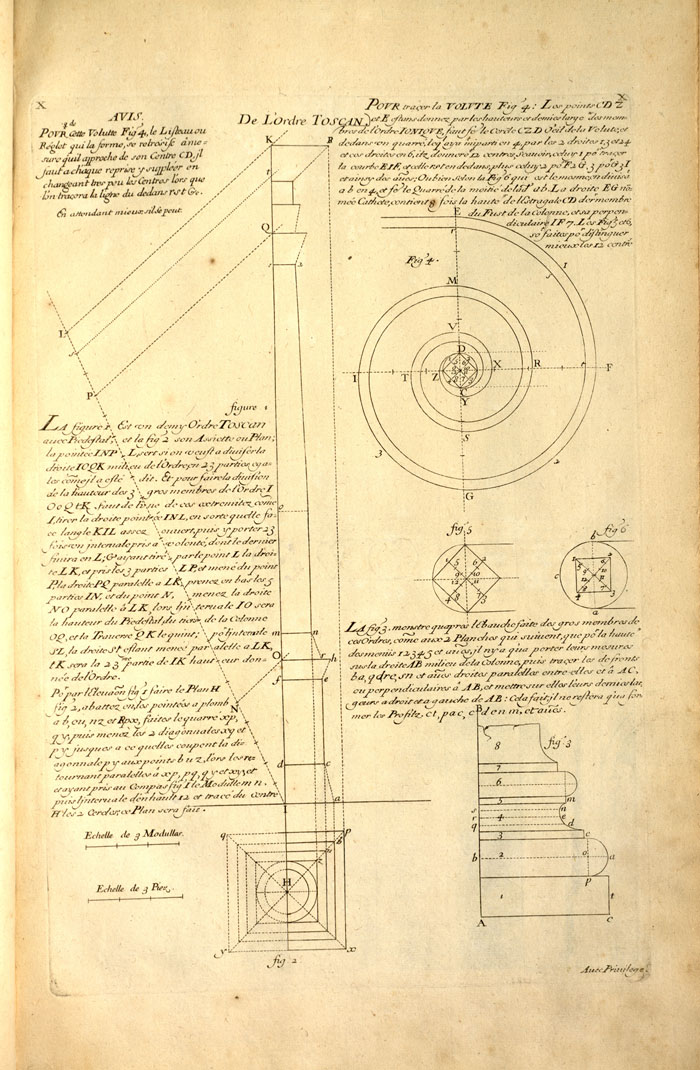 X
X
AVIS.
POUR cette Volutte Fig. 4, le Listeau ou
Reglet qui la forme, se retrosisse à me-
sure qu'il approche de son Centre CD, il
faut a chaque reprise y suppleer en
changeant tres peu les Centres lors que
l'on tracera la ligne du dedans rst &c.
En attendant mieux s'il se peut.
De L'ordre TOSCAN,
POUR tracer la VOLUTE Fig. 4: Les points CD Z
et E estans donnez par les hauteurs et demies larg. des mem-
bres de l'Ordre IONIQUE faut fe. le Cercle CZD Oeil de la Volute, et
dedans un quarré,
en 4, par les 2 droites 13, et 24
et ces droites en 6, ilz donneront 12 centres, Scavoir, celuy 1 po. tracer
la courbe EIF, et celle r s t en dedans, plus celuy 2 po. F 2 G. 3 po. G 3 I
et ainsy des aues: Ou bien selon la Fig. 6 qui est le mesme, en divisāt
a b en 4, et fe. le Quarré de la moitié de lad. ab. La droite EG no-
mée Cathete, contient 9 fois la haute. de l'Estragale CD dermembre
du Fust de la Colonne, et sa perpen-
diculaire IF 7. Les Fig.
se. faites po. distinguer
mieux les 12 centre
E
r
Fig. 4.
1
M
V
D
I
T
Z
X
R
F
C
Y
S
3
2
G
K
t
Q
L
s
P
figure 1
LA figure 1. Est un demy Ordre TOSCAN
avec Piedestal, et la fig 2 son Assiette ou Plan;
la pointée INP L, sert si on veust a diviser la
droite IOQK milieu de l'Ordre, en 23 parties, ega-
les come il a esté dit. Et pour faire la division
de la hauteur des 3 gros membres de l'Ordre I
O Q t K faut de l'une de ces extremitez come
I, tirer la droite pointée INL, en sorte qu'elle fa-
ce langle KIL assez ouvert, puis y porter 23
fois un intervale pris a volonté, dont le dernier
finira en L; Et ayant tiré par le point L la droi-
te LK, et pris les 3 parties LP, et mené du point
P la droite PQ paralelle a LK, prenez en bas les 5
parties IN, et du point N, menez la droite
NO paralelle à LK, lors l'intervale IO sera
la hauteur du Piedestal, du tiers de la Colonne
OQ, et la Traverse QK le quint; po. l'intervale
SL, la droite St estant menée paralelle a LK
tK sera la 23 partie de IK hauteur don-
née de l'Ordre.
Po. par l'Elevaōn fig 1 faire le Plan H
fig 2, abattez ou les pointées a plomb
a b, ou, nz et Rpxo, faites le quarré xp,
qy, puis menez les 2 diagonnales xq et
py jusques a ce quelles coupent la di-
agonnale py aux points b u z, lors les re
tournant paralelles a xp, pq, qy et xy, et
et ayant pris au Compas fig 1 le Modulle m n,
puis l'intervale d'en hault 12 et tracé du centre
H les 2 Cercles, ce Plan sera fait.
o
m
n
O
r
h
f
e
N
d
c
I
a
Echelle de 3 Modulles.
Echelle de 3 Piez.
q
p
H
y
x
fig 2
fig. 5
fig 6
b
c
a
LA fig 3. monstre qu'apres l'Ebauche faite des gros membres de
ces Ordres, cōme aux 2 Planches qui suivent, que po. la haute.
des menus 1 2 3 4 5 et aues, il n'y a qua porter leurs mesures
sus la droite AB milieu de la Colonne, puis tracer les de fronts
b a, q d r e, s n et aues droites paralelles entre elles et à AC,
ou perpendiculaires à AB, et mettre sur elles leurs demies lar-
geurs a droit et a gauche de AB: Cela fait il ne restera qua for-
mer les Profilz, c t, p a c, c d e n m, et aues.
B
8
fig 3
7
6
5
m
s
n
r
4
e
q
d
3
c
b
2
o
a
p
1
t
A
c
Avec Privilege.